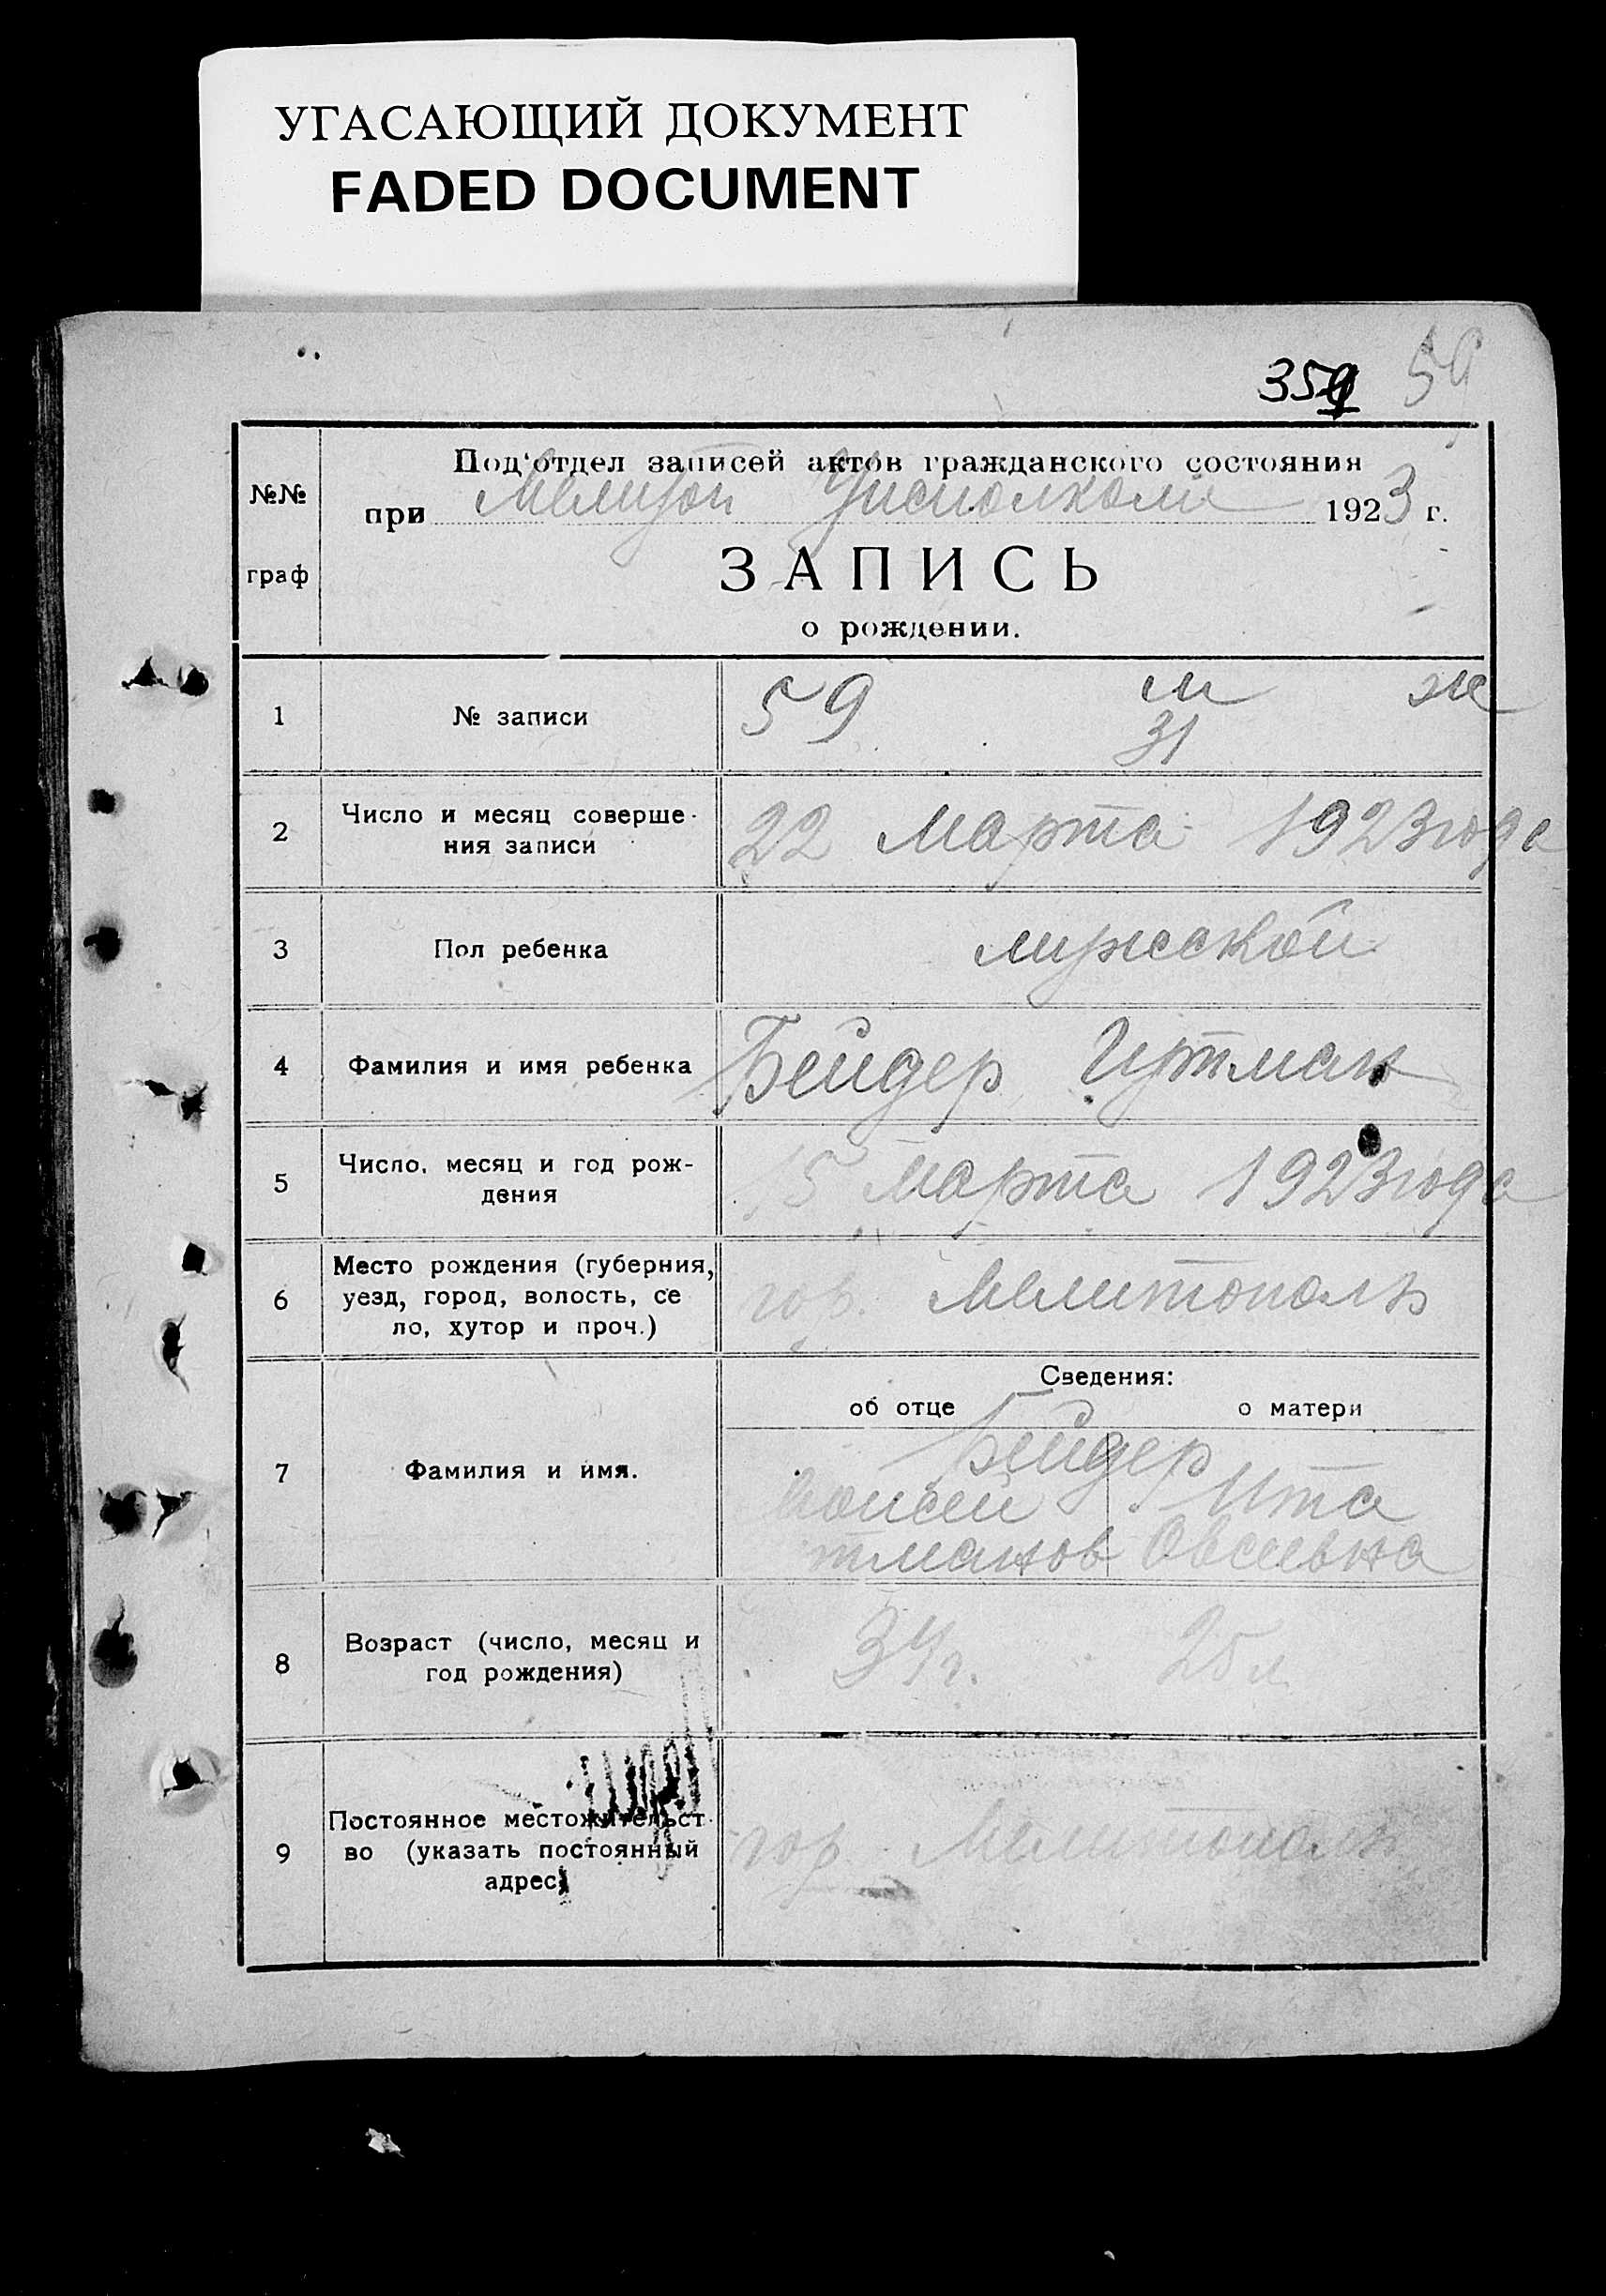 УГАСАЮЩИЙ ДОКУМЕНТ
FADED DOCUMENT
359 59
Под'отдел записей актов гражданского состояния
№№
при Мелитоп Уисполкоме 1923 г.
ЗАПИСЬ
граф
о рождении.
м ж
1 № записи 59
31
2 Число и месяц соверше-
ния записи
22 марта 1923 года
3 Пол ребенка мужской
4 Фамилия и имя ребенка Бейдер Гутман
5 Число, месяц и год рож-
дения
15 марта 1923 года
6 Место рождения (губерния,
уезд, город, волость, се
ло, хутор и проч.)
гор. Мелитополь
Сведения:
об отце о матери
7 Фамилия и имя.
Бейдер
Моисей Ита
тманов Овсеевна
8 Возраст (число, месяц и
год рождения)
34 г. 25 л.
9 Постоянное местожительст
во (указать постоянный
адрес)
гор. Мелитополь